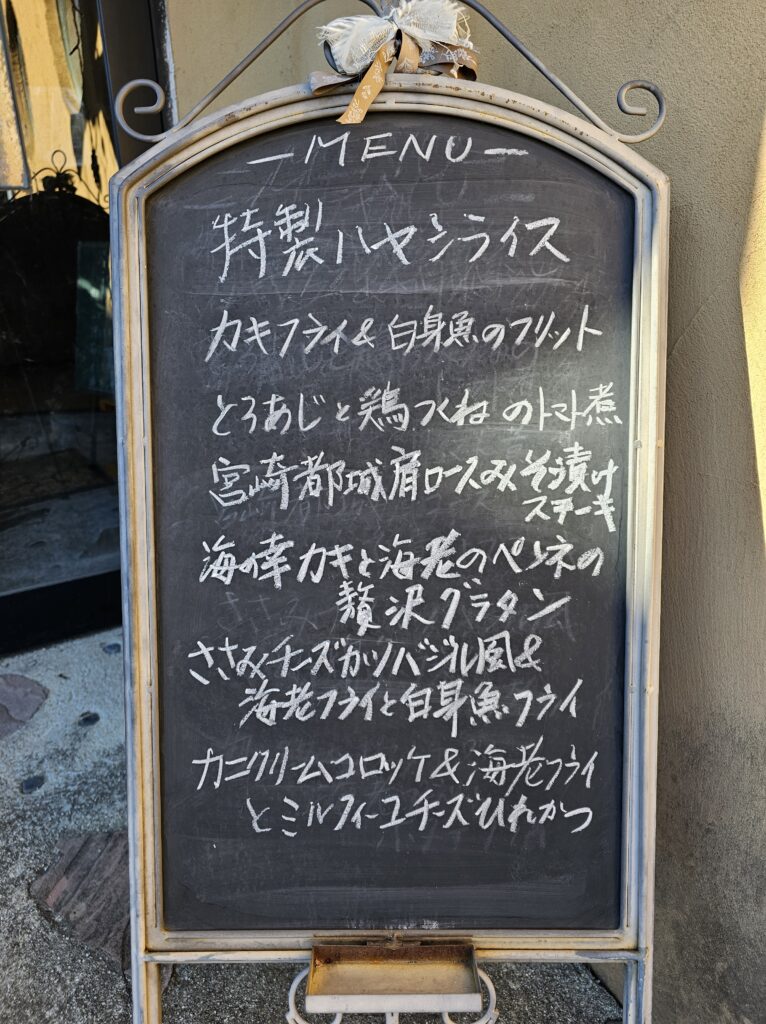 ーMENUー
特製ハヤシライス
カキフライ&白身魚のフリット
とろあじと鶏つくねのトマト煮
宮崎都城肩ロースみそ漬け
ステーキ
海の幸カキと海老のペンネの
贅沢グラタン
ささみチーズカツバジル風&
海老フライと白身魚フライ
カニクリームコロッケ&海老フライ
とミルフィーユチーズひれかつ